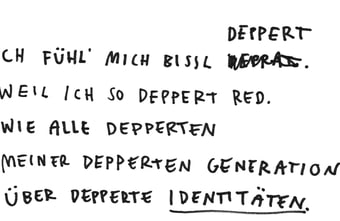 DEPPERT
CH FÜHL' MICH BISSL
WEIL ICH SO DEPPERT RED.
WIE ALLE DEPPERTEN
MEINER DEPPERTEN GENERATION
ÜBER DEPPERTE IDENTITÄTEN.